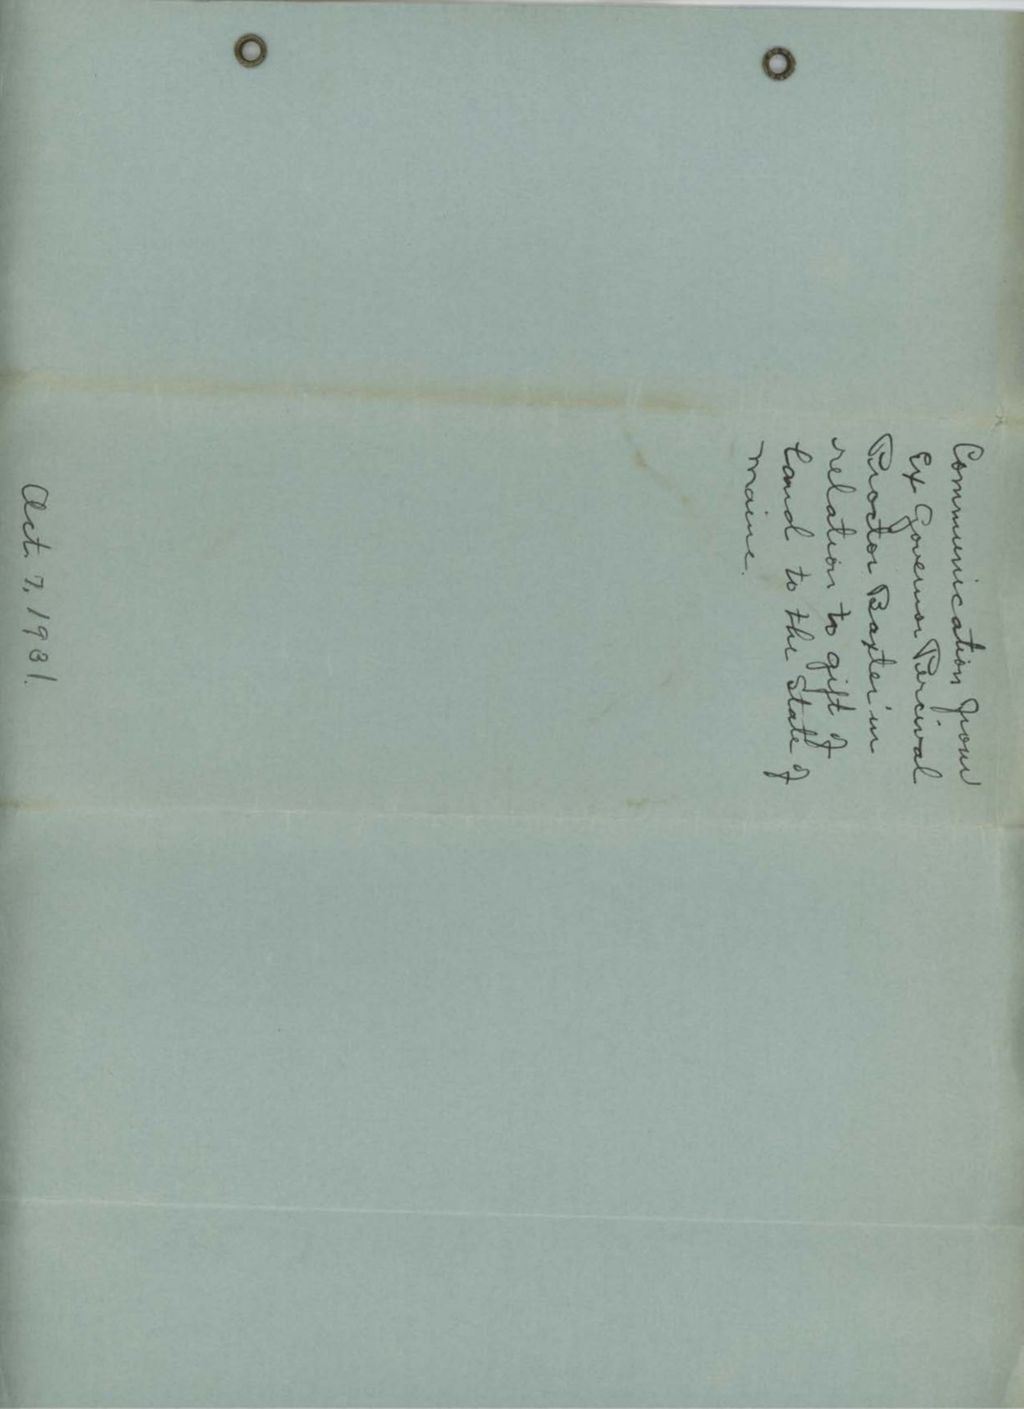 Communication from
Ex Governor Percival
Proctor Baxter in
relation to gift of
land to the State of
Maine.
Oct. 7, 1931.